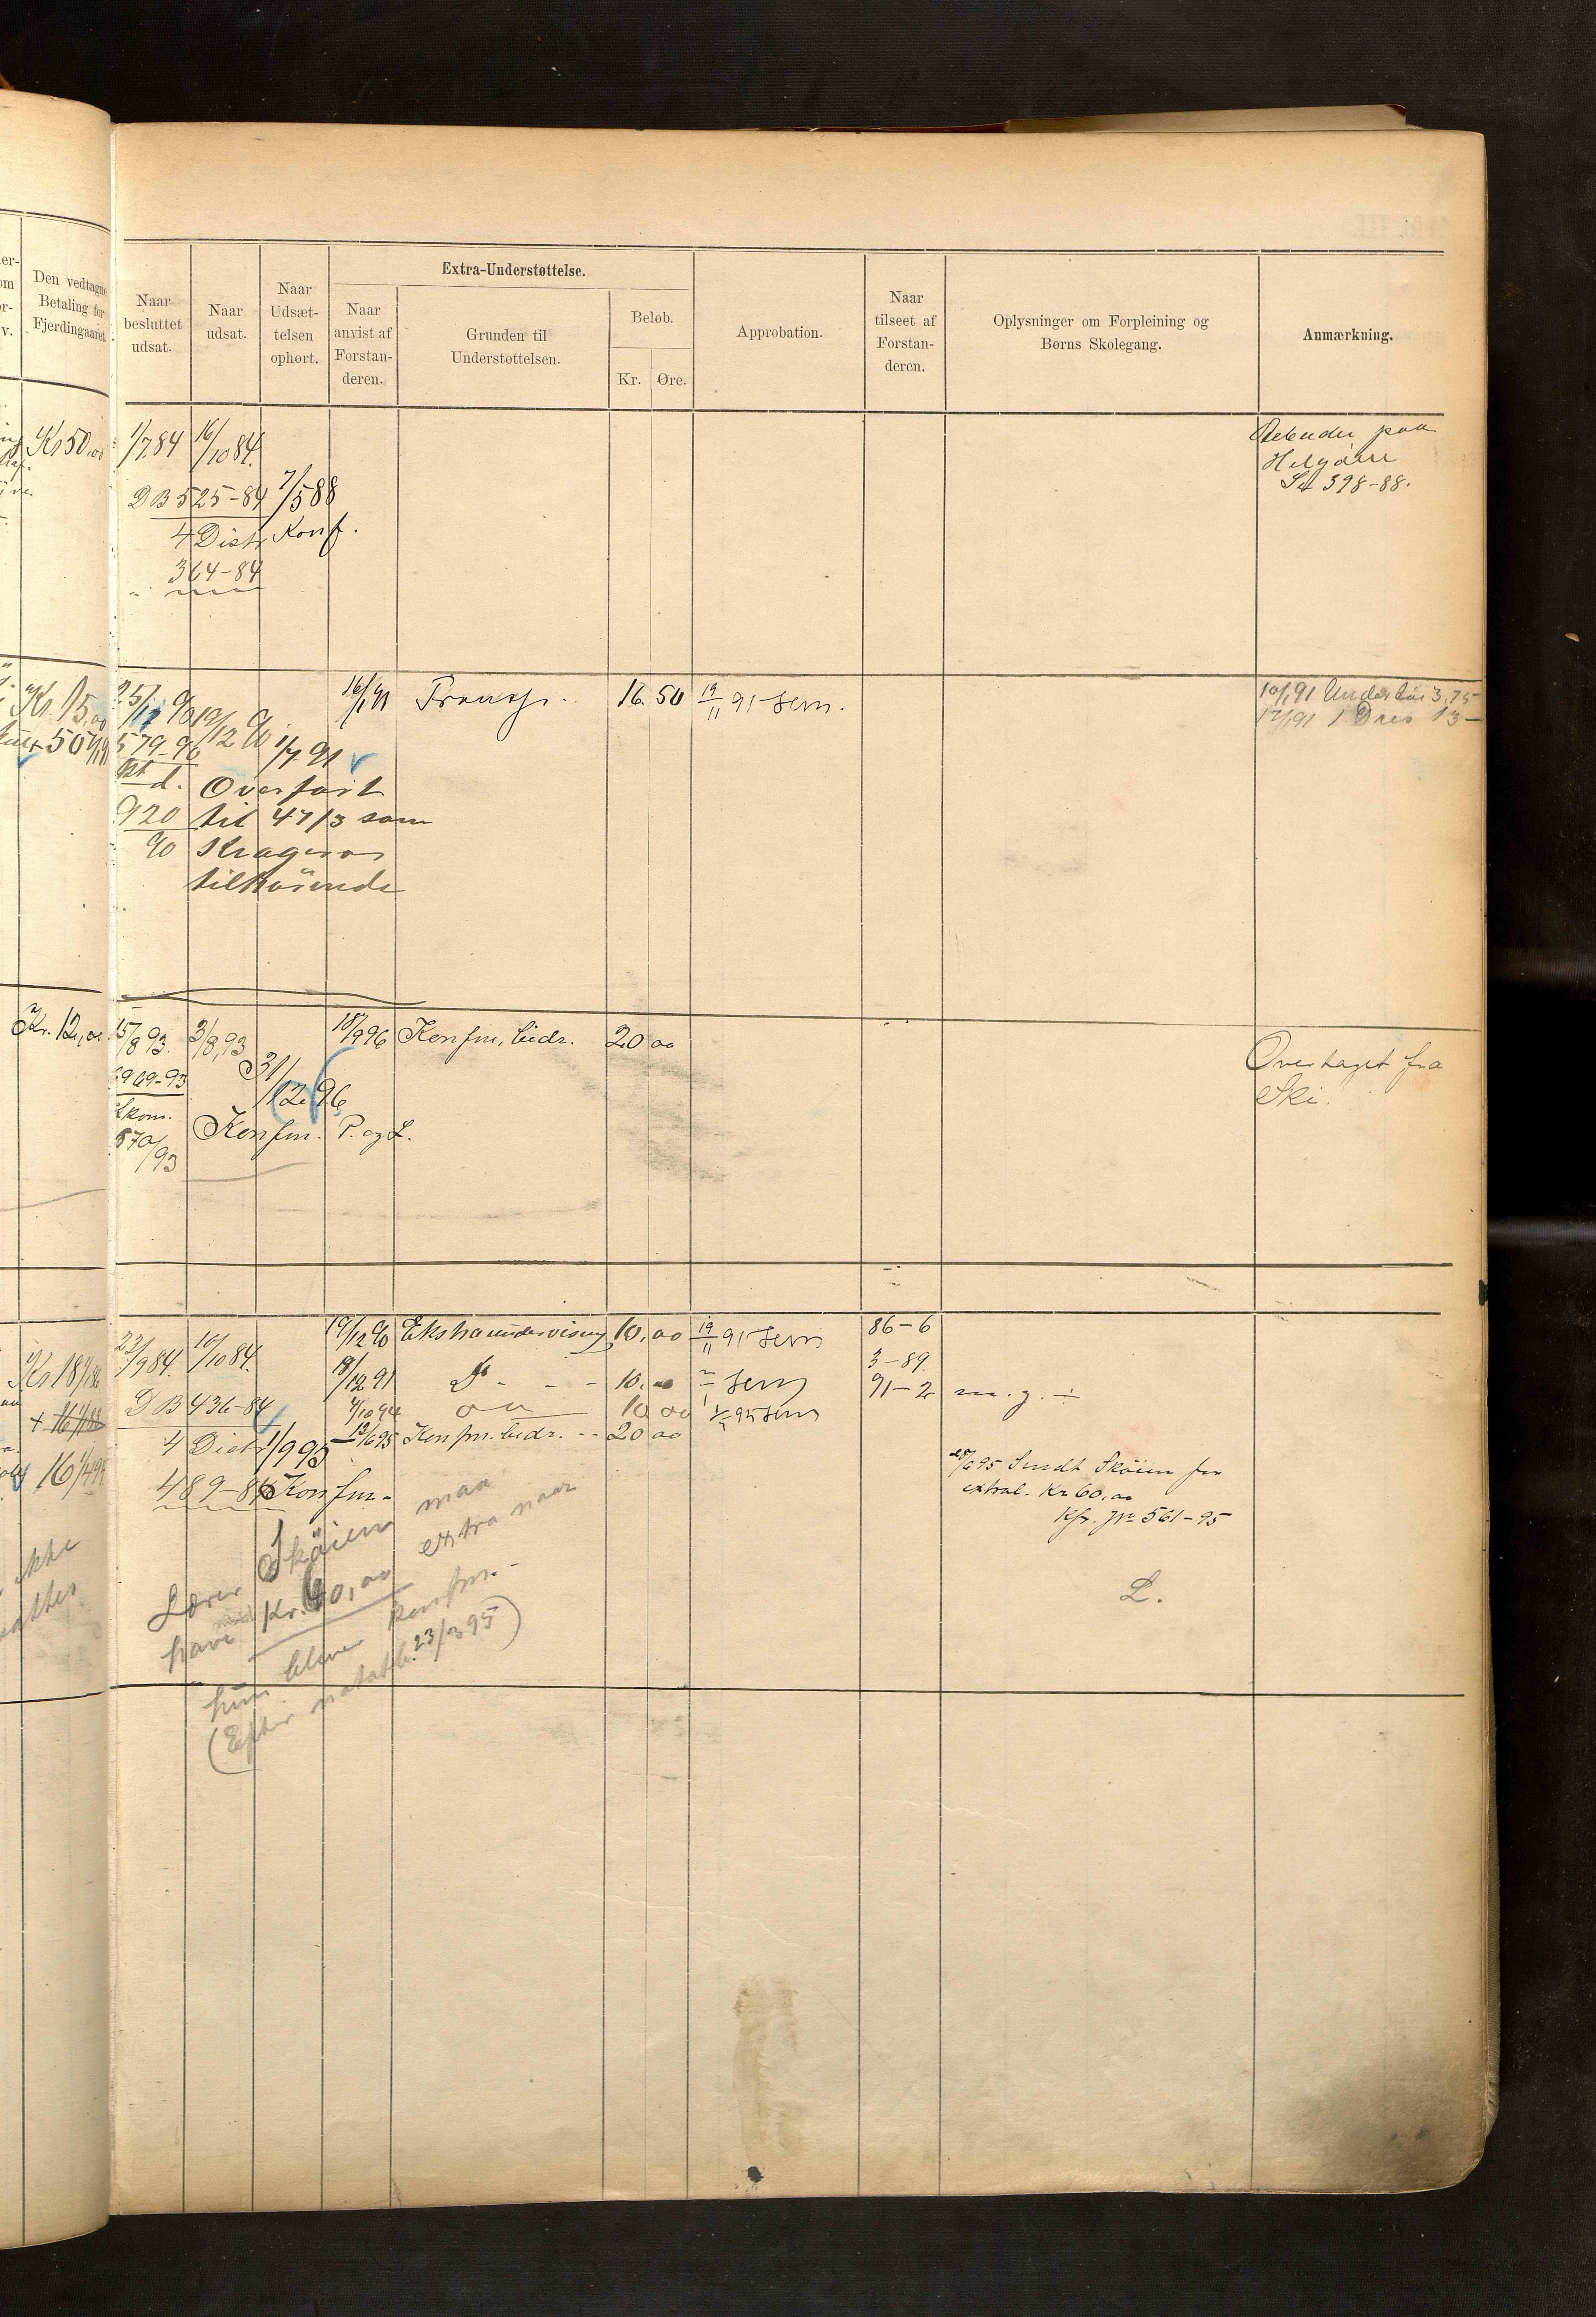 Den vedtagne
Betaling for
Fjerdingaaret.
Naar
besluttet
udsat.
Naar
udsat.
Naar
Udsæt-
telsen
ophørt.
Extra-Understøttelse.
Naar
anvist af
Forstan-
deren.
Grunden til
Understøttelsen.
Beløb.
Kr. Øre.
Approbation.
Naar
tilseet af
Forstan-
deren.
Oplysninger om Forpleining og
Børns Skolegang.
Anmærkning.
Kr 50,00 1/7 84 16/10 84. paa
Helgøen
398-88.
DB 525-84 7/5 88
4 Distr Konf.
364-84
Kr. 15,00 19/12 90 16/1 91 16. 50 19/11 91 10/1 91 3,75
17/1 91 1 13 -
+ 50 579-90 1/7 91
d. Overført
920 til 47/3 som
90 Kragerø
tilhørende
Kr. 12,00 15/8 93. 3/8, 93 18/9 96 Konfm, bidr. 20 00 Overtaget fra
Ski.
969-93 31/12 96
870/93 Konfm. P. og L.
Kr 18 22/9 84. 10/10 84. 19/12 90 Ekstraundervisning 10,00 19/11 91 86-6
3-89.
18/12 91 Do - - - 10,00 91-2 m. g.
DB 436-84 4/10 94 10 00
4 Distr 1/9 95 12/6 95 Konfm. bidr. -- 20 00
16 1/4 95 489-84 Konfm.
25/6 95 Sendt Skøien for
extral. Kr 60,00
Kfr. Jr 561-95
L.
Lærer Skøien maa
have Kr. 60,00 extra naar
hun bliver konfm.-
(Efter notatb. 23/3 95)
ikke